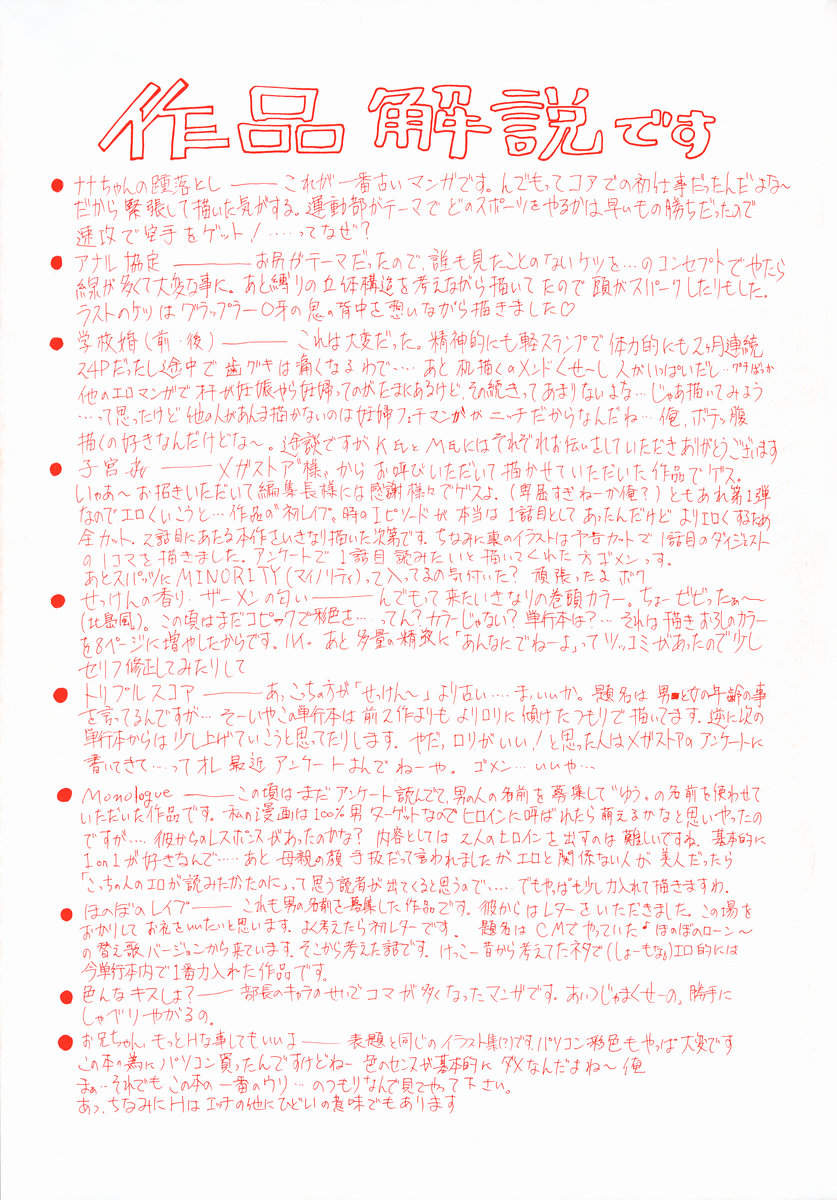 作品解説です
ナナちゃんの堕落とし ── これが一番古いマンガです。んでもってコアでの初仕事だったんだよな~
だから緊張して描いた気がする。運動部がテーマでどのスポーツをやるかは早いもの勝ちだったので
速攻で空手をゲット!……ってなぜ?
アナル協定 ── お尻がテーマだったので、誰も見たことのないケツを…のコンセプトでやたら
線が多くて大変な事に。あと縛りの立体構造を考えながら描いてたので頭がスパークしたりもした。
ラストのケツはグラップラー〇牙の鬼の背中を想いながら描きました♡
学校婚(前・後) ── これは大変だった。精神的にも軽スランプで体力的にも2ヶ月連続
24Pだったし途中で歯グキは痛くなるわで…. あと机描くのメンドくせーし人がいっぱいだし…
他のエロマンガでオチが妊娠やら妊婦ってのがたまにあるけど、その続きってあまりないよな…じゃあ描いてみよう
…って思ったけど他の人があんま描かないのは妊婦フェチマンガがニッチだからなんだね…俺、ボテッ腹
描くの好きなんだけどな~。途談ですがK氏とM氏にはそれぞれお伝いをしていただきありがとうございます
子宮 ── メガストア様からお呼びいただいて描かせていただいた作品でゲス。
いやぁ~お招きいただいて編集長様には感謝様々でゲスよ。(卑屈すぎねーか俺?)ともあれ第1弾
なのでエロくいこうと…作品の初レイプ。時のエピソードが本当は1話目としてあったんだけどよりエロくするため
全カット。2話目にあたる本作をいきなり描いた次第です。ちなみに裏のイラストは予告カットで1話目のダイジェスト
の1コマを描きました。アンケートで1話目読みたいと描いてくれた方ゴメンっす。
あとスパッツにMINORITY(マイノリティ)って入ってるの気付いた? 頑張ったよボク
せっけんの香り・ザーメンの匂い ── んでもって来たいきなりの巻頭カラー。ちょービビったぁ~
(北島風)。この頃はまだコピックで彩色を…ってん?カラーじゃない?単行本は?…それは描きおろしのカラー
を8ページに増やしたからです。ハイ。あと多量の精液に「あんなにでねーよ」ってツッコミがあったので少し
セリフ修正してみたりして
トリプルスコア ── あっこっちの方が「せっけん~」より古い…. ま、いいか。題名は男と女の年齢の事
を言ってるんですが… そーいやこの単行本は前2作よりもよりロリに傾けたつもりで描いてます。逆に次の
単行本からは少し上げていこうと思ってたりします。やだ、ロリがいい!と思った人はメガストアのアンケートに
書いてきて…ってオレ最近アンケートよんでねーや。ゴメン…いいや…
Monologue ── この頃はまだアンケート読んでて、男の人の名前を募集して"ゆう"の名前を使わせて
いただいた作品です。私の漫画は100%男ターゲットなのでヒロインに呼ばれたら萌えるかなと思いやったの
ですが…. 彼からのレスポンスがあったのかな? 内容としては2人のヒロインを出すのは難しいですね. 基本的に
1on1が好きなんで…..あと母親の顔手抜だって言われましたがエロと関係ない人が美人だったら
「こっちの人のエロが読みたかったのに」って思う読者が出てくると思うので…. でもやっぱも少し力入れて描きますわ。
ほのぼのレイプ ── これも男の名前を募集した作品です。彼からはレターをいただきました。この場を
おかりしてお礼をいいたいと思います。よく考えたら初レターです。 題名はCMでやっていた♪ほのぼのローン~
の替え歌バージョンから来ています。そこから考えた話です。けっこー昔から考えてたネタで(しょーもなっ)エロ的には
今単行本内で1番力入れた作品です。
色んなキスしよ? ── 部長のキャラのせいでコマが多くなったマンガです。あいつじゃまくせーの。勝手に
しゃべりやがるの。
お兄ちゃん、もっとHな事してもいいよ ── 表題と同じのイラスト集(?)です。パソコン彩色もやっぱ大変です
この本の為にパソコン買ったんですけどねー 色のセンスが基本的にダメなんだよね~俺
まぁ…それでもこの本の一番のウリ…のつもりなんで見てやって下さい。
あっ、ちなみにHはエッチの他にひどいの意味でもあります